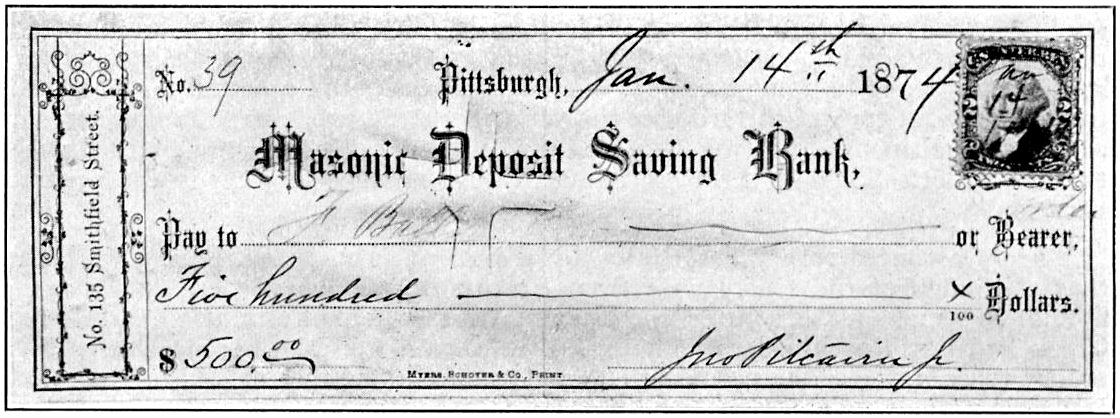 No. 39 Pittsburgh, Jan. 14th 1874
Masonic Deposit Saving Bank,
No. 135 Smithfield Street.
Pay to or Bearer,
Five hundred x/100 Dollars.
$ 500.00 Jno Pitcairn Jr
Myers, Schoyer & Co., Print